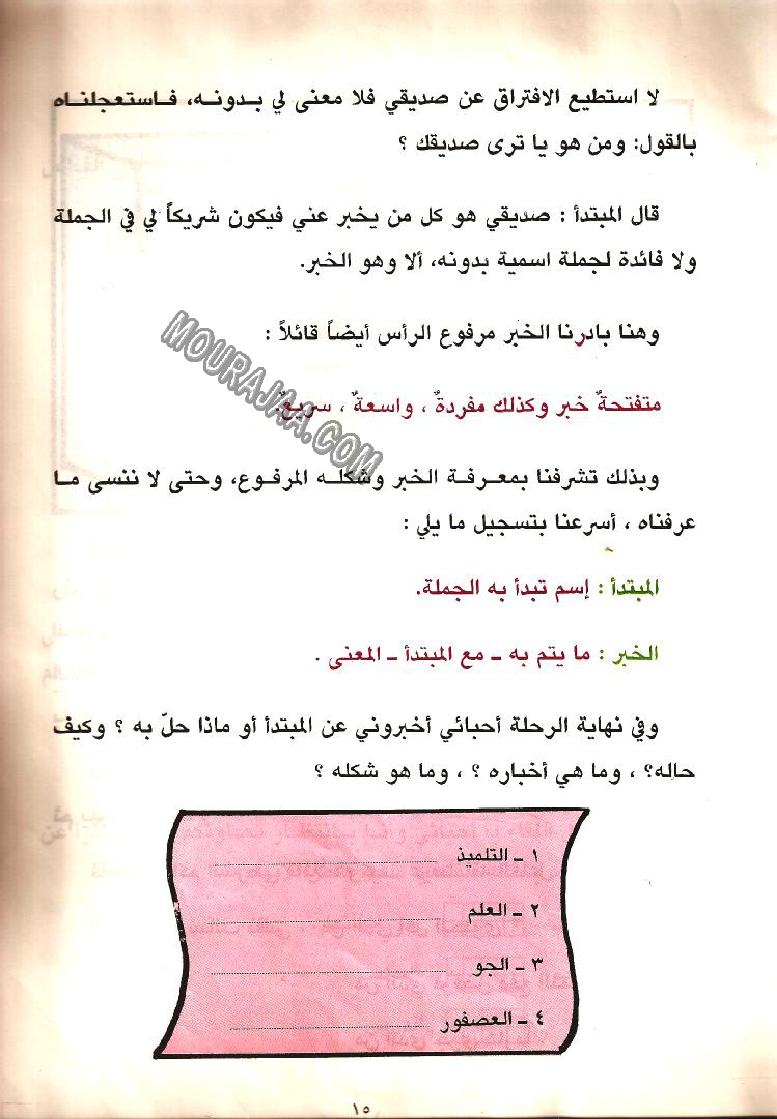 لا استطيع الافتراق عن صديقي فلا معنى لي بـدونـه، فـاستعجلنـاه
بالقول: ومن هو يا ترى صديقك ؟
قال المبتدأ : صديقي هو كل من يخبر عني فيكون شريكاً لي في الجملة
ولا فائدة لجملة اسمية بدونه، ألا وهو الخبر.
وهنا بادرنا الخبر مرفوع الرأس أيضاً قائلاً :
متفتحةٌ خبر وكذلك مفردةٌ ، واسعةٌ ، سريعٌ.
MOURAJAA.COM
وبذلك تشرفنا بمعـرفـة الخبر وشكلـه المرفـوع، وحتى لا ننسى مـا
عرفناه ، أسرعنا بتسجيل ما يلي :
المبتدأ : إسم تبدأ به الجملة.
الخبر : ما يتم به ـ مع المبتدأ ـ المعنى .
وفي نهاية الرحلة أحبائي أخبروني عن المبتدأ أو ماذا حلّ به ؟ وكيف
حاله؟ ، وما هي أخباره ؟ ، وما هو شكله ؟
١ ـ التلميذ
٢ ـ العلم
٣ ـ الجو
٤ ـ العصفور
١٥